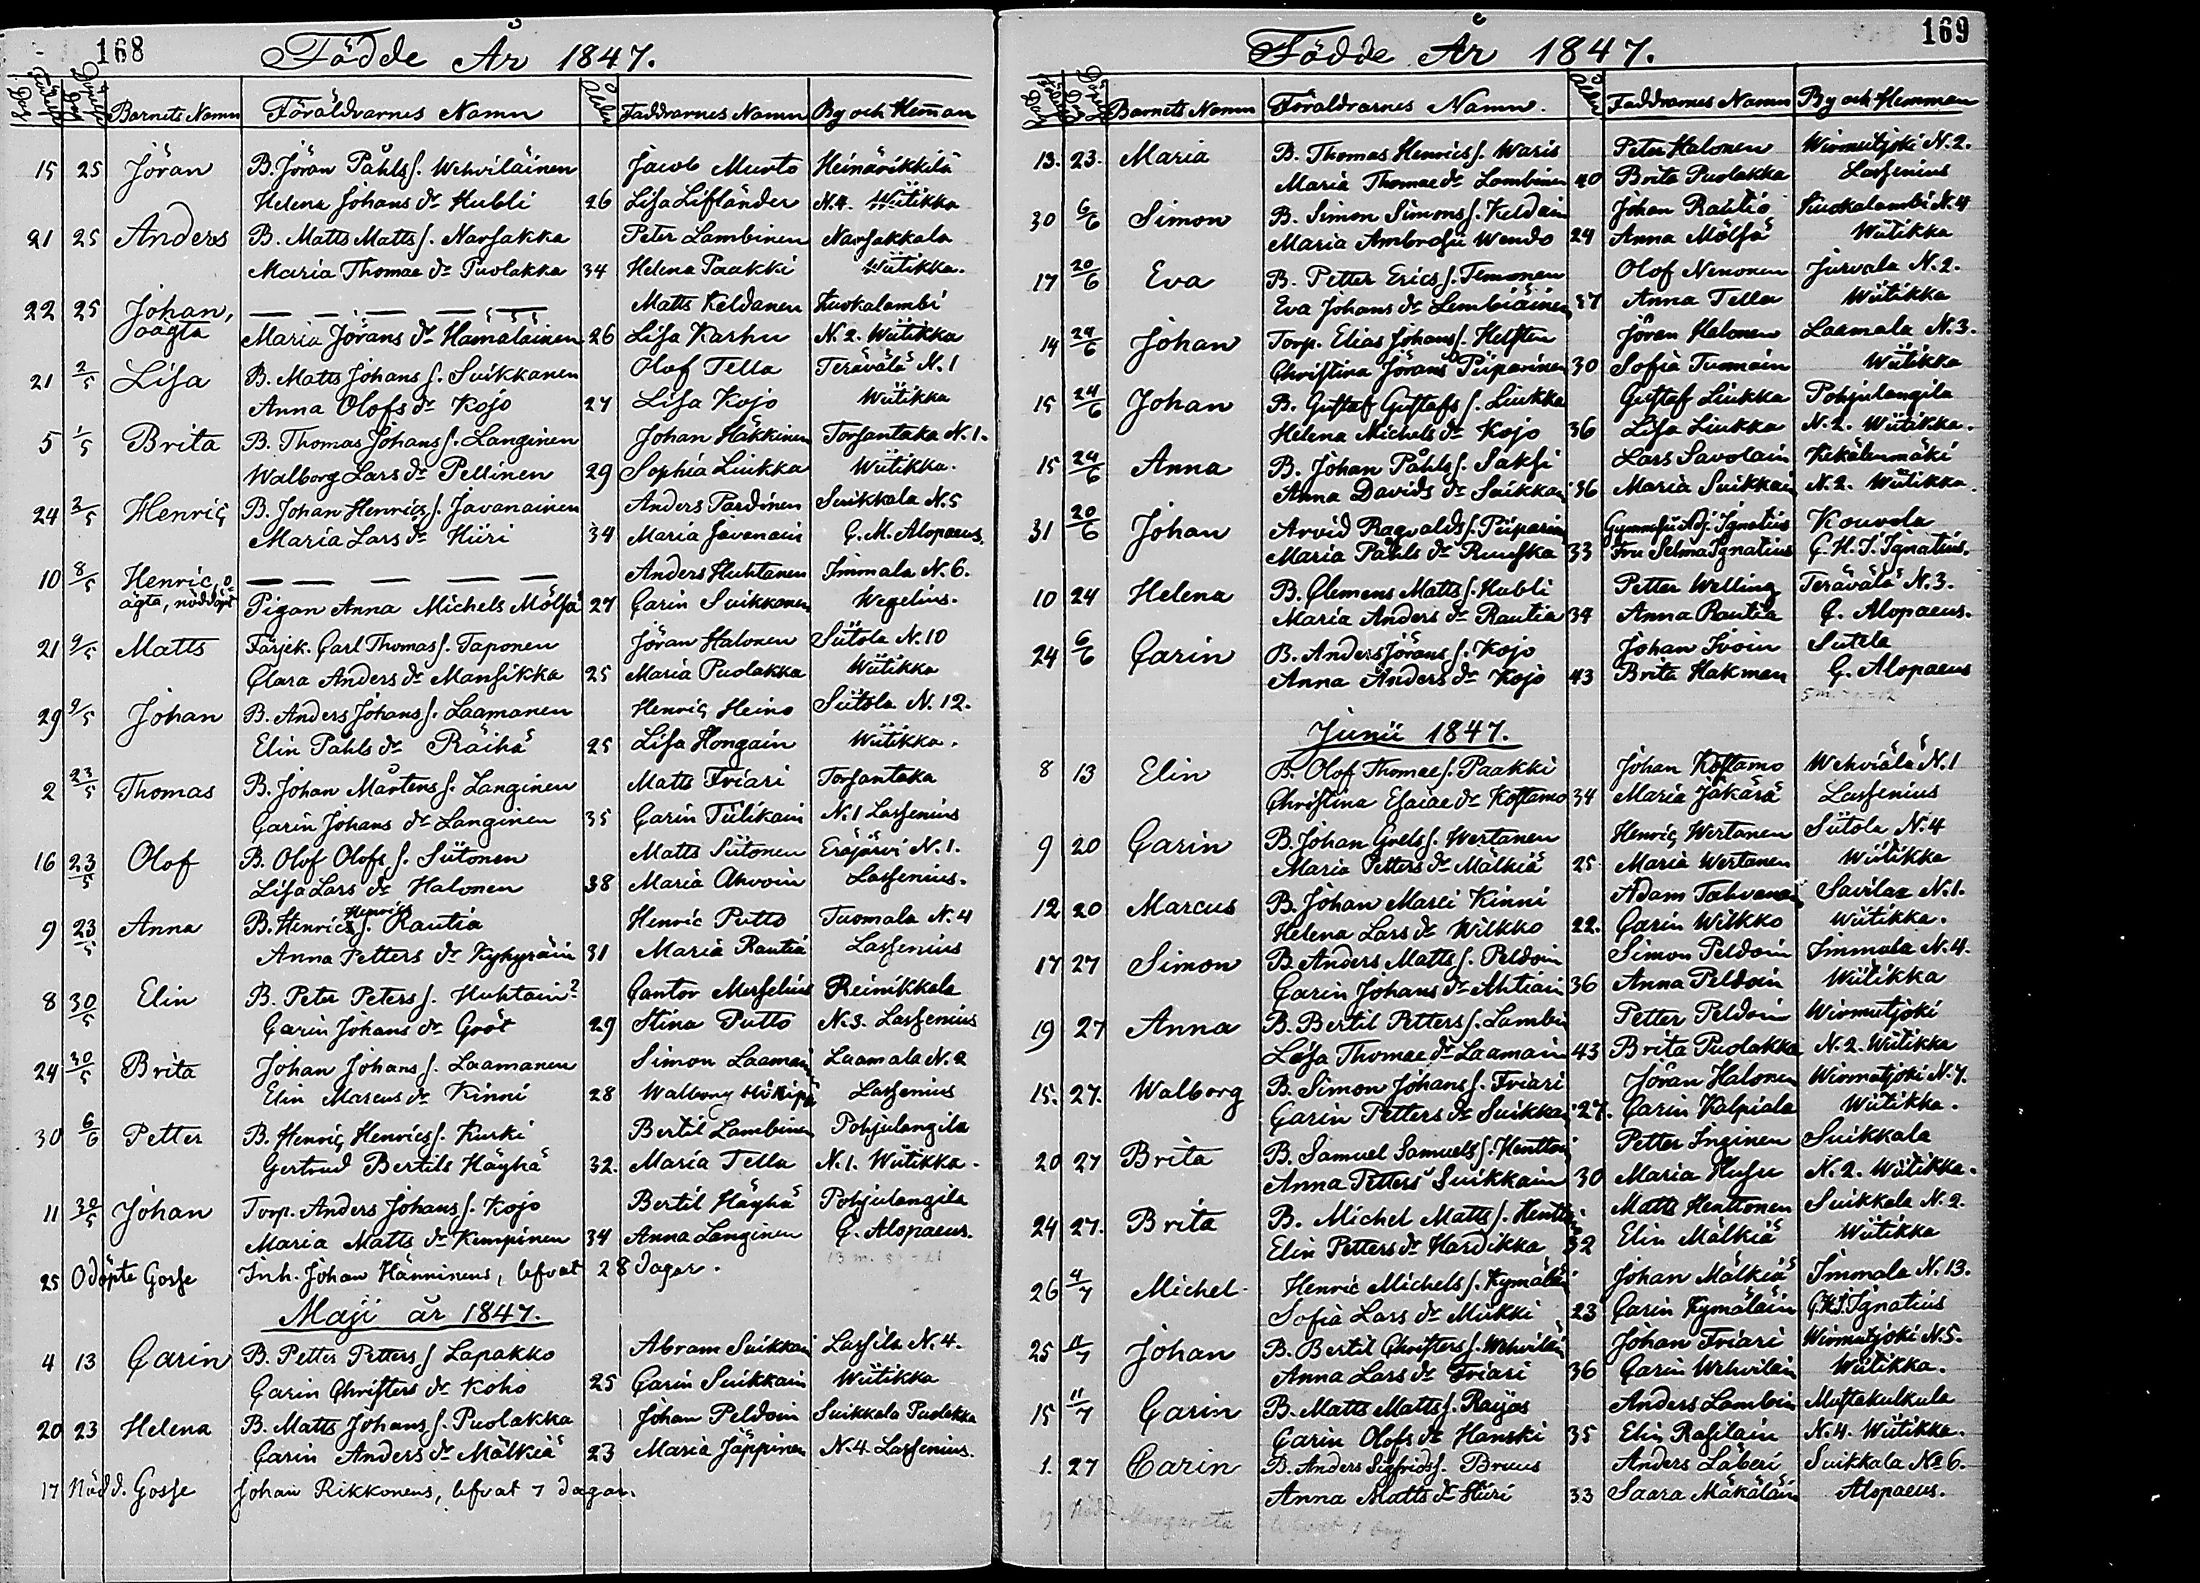 168
Födde År 1847.
Barnets Namn Föräldrarnes Namn Ålder Faddrarnes Namn By och Hem̅an
15 25 Jöran B. Jöran Påhls s. Wehviläinen Jacob Murto Heinärikkilä
Helena Johans dr Hubli 26 Lisa Lifländer N.4. Wiitikka
21 25 Anders B. Matts Matts s. Narsakka Peter Lambinen Narsakkala
Maria Thomae dr Puolakka 34 Helena Paakki Wiitikka.
22 25 Johan, — — — — Matts Keldanen Kuokalambi
oägta Maria Jörans dr Hämäläinen 26 Lisa Karhu N. 2. Wiitikka
21 2/5 Lisa B. Matts Johans s. Suikkanen Olof Tella Terävälä N. 1
Anna Olofs dr Kojo 27 Lisa Kojo Wiitikka
5 1/5 Brita B. Thomas Johans s. Langinen Johan Häkkinen Torsantaka N. 1.
Walborg Lars dr Pellinen 29 Sophia Liukka Wiitikka.
24 2/5 Henric B. Johan Henrics s. Javanainen Anders Pardinen Suikkala N. 5
Maria Lars dr Hiiri 34 Maria Javenain C. M. Alopaeus.
10 8/5 Henric, o- — — — — — Anders Huhtanen Immala N. 6.
ägta, nöddöpt Pigan Anna Michels Mölsä 27 Carin Suikkonen Wegelius.
21 9/5 Matts Färjek. Carl Thomas s. Taponen Jöran Halonen Siitola N. 10
Clara Anders dr Mansikka 25 Maria Puolakka Wiitikka
29 9/5 Johan B. Anders Johans s. Laamanen Henric Heino Siitola N. 12.
Elin Påhls dr Räihä 25 Lisa Hongain Wiitikka.
2 23/5 Thomas B. Johan Mårtens s. Langinen Matts Friari Torsantaka
Carin Johans dr Langinen 35 Carin Tiilikain N. 1 Lassenius
16 23/5 Olof B. Olof Olofs s. Siitonen Matts Siitonen Eräjärvi N. 1.
Lisa Lars dr Halonen 38 Maria Ahvoin Lassenius.
9 23/5 Anna B. Henric Henrics s. Rautia Henric Putto Tuomala N. 4
Anna Petters dr Kykyräin 31 Maria Rautia Lassenius
8 30/5 Elin B. Peter Peters s. Huhtain? Cantor Meselius Reinikkala
Carin Johans dr Gröt 29 Stina Putto N. 3. Lassenius
24 30/5 Brita Johan Johans s. Laamanen Simon Laamain Laamala N. 2
Elin Marcus dr Kinni 28 Walborg Lassenius
30 6/6 Petter B. Henric Henrics s. Kurki Bertil Lambinen Pohjulangila
Gertrud Bertils Häyhä 32. Maria Tella N. 1. Wiitikka.
11 30/5 Johan Torp. Anders Johans s. Kojo Bertil Häyhä Pohjulangila
Maria Matts dr Kempinen 34 Anna Langinen C. Alopaeus.
25 Odöpte Gosse Inh. Johan Hänninens, lefvat 28 dagar. 13 m. 8 = 21
Maji år 1847.
4 13 Carin B. Petter Petters s. Lapakko Abram Suikkain Lassila N. 4.
Carin Christers dr Koho 25 Carin Suikkain Wiitikka
20 23 Helena B. Matts Johans s. Puolakka Johan Peldoin Suikkala Puolakka
Carin Anders dr Mälkiä 23 Maria Jäppinen N. 4 Lassenius.
17 Nödd. Gosse Johan Rikkonens, lefvat 7 dagar.
169
Födde År 1847.
Barnets Namn Föräldrarnes Namn. Ålder Faddrarnes Namn By och Hemman
13. 23. Maria B. Thomas Henrics s. Waris Peter Halonen Wirmutjoki N. 2.
Maria Thomae dr Lambinen 40 Brita Puolakka Lassenius
30 6/6 Simon B. Simon Simons s. Keldain Johan Rautio Kuokalambi N. 4
Maria Ambrosii Wendo 24 Anna Mölsä Wiitikka
17 20/6 Eva B. Petter Erics s. Temonen Olof Nenonen Jurvala N. 2.
Eva Johans dr Lembiäinen 37 Anna Tella Wiitikka
14 24/6 Johan Torp. Elias Johans s. Helsten Jöran Halonen Laamala N. 3.
Christina Jörans Piiparinen 30 Sofia Tuomain Wiitikka
15 24/6 Johan B. Gustaf Gustafs s. Liukka Gustaf Liukka Pohjulangila
Helena Michels dr Kojo 36 Lisa Liukka N. 2. Wiitikka.
15 24/6 Anna B. Johan Påhls s. Saksi Lars Savolain Kekälenmäki
Anna Davids dr Suikkan 36 Maria Suikkain N. 2. Wiitikka.
31 20/6 Johan Arvid Ragvalds s. Piiparin Ignatius Kouvola
Maria Påhls dr Ruuska 33 Fru Selma Ignatius C. H. J. Ignatius.
10 24 Helena B. Clemens Matts s. Hubli Petter Welling Terävälä N. 3.
Maria Anders dr Rautia 34 Anna Rautia C. Alopaeus.
24 6/6 Carin B. Anders Jörans s. Kojo Johan Ivoin Sutela
Anna Anders dr Kojo 43 Brita Hakman C. Alopaeus
Junii 1847.
8 13 Elin B. Olof Thomae s. Paakki Johan Kostamo Wehviälä N. 1
Christina Esaiae dr Kostamo 34 Maria Jäkärä Lassenius
9 20 Carin B. Johan Grels s. Wertanen Henric Wertanen Siitola N. 4
Maria Petters dr Mälkiä 25 Maria Wertanen Wiitikka
12 20 Marcus B. Johan Marci Kinni Adam Tahvanai Savilax N. 1.
Helena Lars dr Wilkko 22. Carin Wilkko Wiitikka.
17 27 Simon B. Anders Matts s. Peldoin Simon Peldoin Immala N. 4.
Carin Johans dr Ahtiain 36 Anna Peldoin Wiitikka
19 27 Anna B. Bertil Petters s. Lambin Petter Peldoin Wirmutjoki
Lisa Thomae dr Laamain 43 Brita Puolakka N. 2. Wiitikka
15. 27. Walborg B. Simon Johans s. Friari Jöran Halonen Wirmutjoki N. 7.
Carin Petters dr Suikkai 27. Carin Kalpiala Wiitikka.
20 27 Brita B. Samuel Samuels s. Henttoi Petter Inginen Suikkala
Anna Petters Suikkain 30 Maria Husu N. 2. Wiitikka.
24 27. Brita B. Michel Matts s. Hentt Matts Henttonen Suikkala N. 2.
Elin Petters dr Hardikka 32 Elin Mälkiä Wiitikka
26 4/7 Michel Henric Michels s. Kymäläi Johan Mälkiä Immala N. 13.
Sofia Lars dr Miikki 23 Carin Kymäläin C.H.J. Ignatius
25 11/7 Johan B. Bertil Christers s. Wehviläi Johan Friari Wirmutjoki N. 5.
Anna Lars dr Friari 36 Carin Wehvilän Wiitikka.
15 11/7 Carin B. Matts Matts s. Raijas Anders Lambin Mustakulkula
Carin Olofs dr Hanski 35 Elin Rasilain N. 4. Wiitikka.
1. 27 Carin B. Anders Sigfrids s. Bruus Anders Läberi Suikkala No 6.
Anna Matts dr Hiiri 33 Saara Mäkäläin Alopaeus.
Nödd Margareta lefvat 1 dag